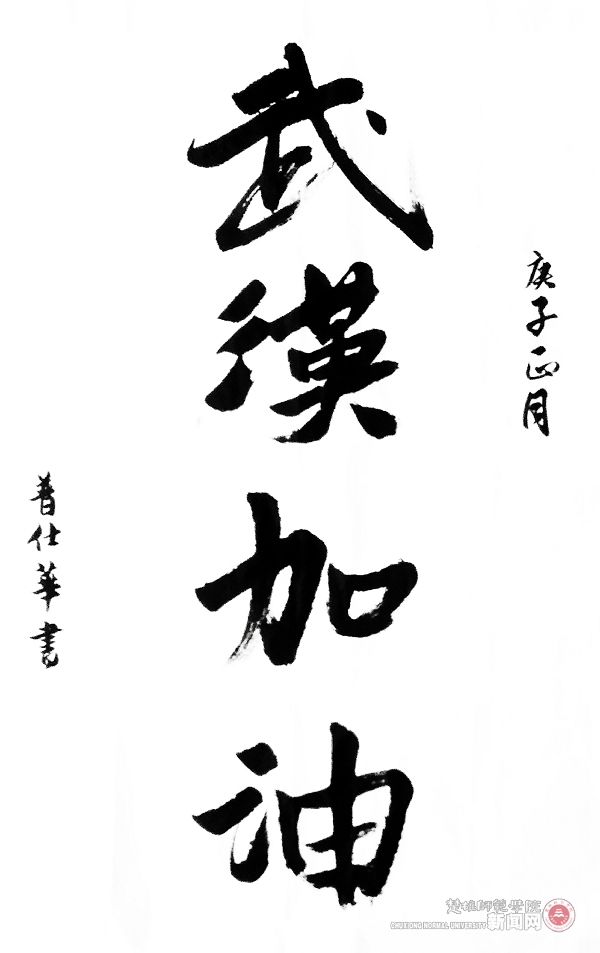 庚子正月
武漢加油
普仕華書
楚雄師範學院
CHUXIONG NORMAL UNIVERSITY 新闻网